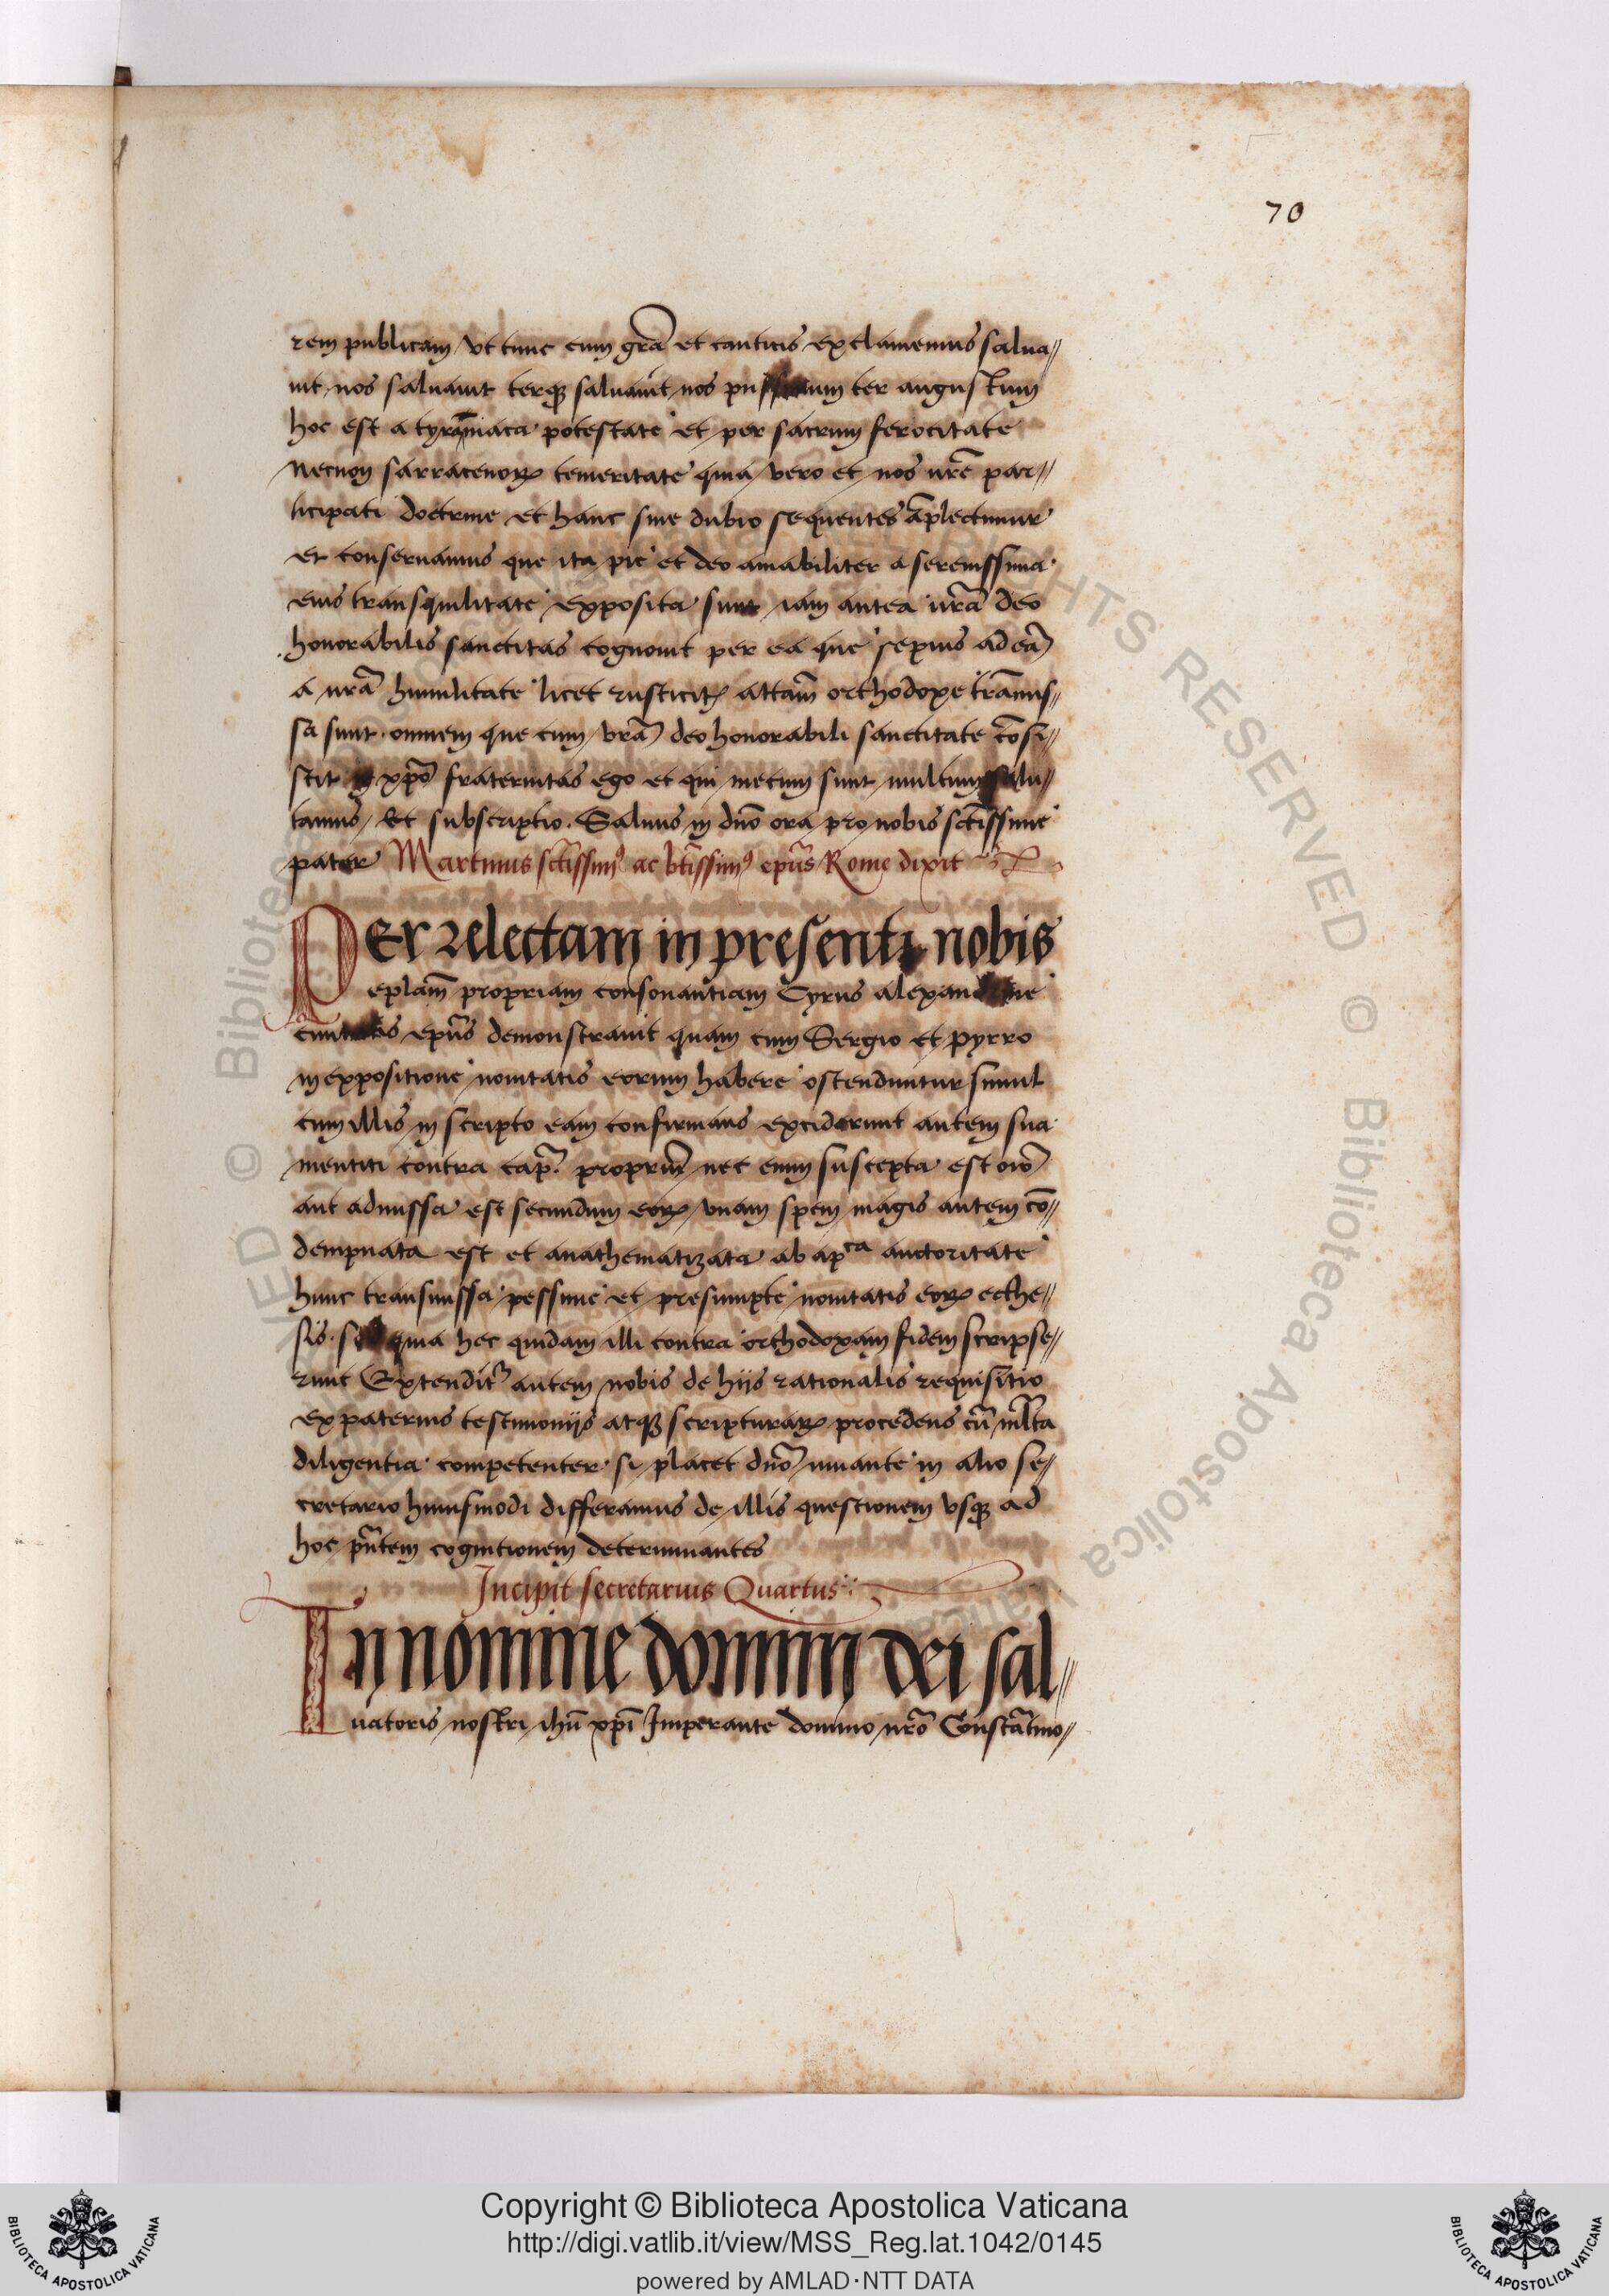 70
rem publicam vt tunc cum grã et canticis exclamemus salua//
uit nos saluauit terqꝫ saluauit nos ter augustum
hoc est a tyrãniaca potestate et per sacrum ferocitate
necnon sarracenoꝝ temeritate qua vero et nos nrẽ par//
ticipati doctrine et hanc sine dubio sequentes ãplectimur
et conseruamus que ita pie et deo amabiliter a serenissima
eius transquilitate exposita sunt iam antea urã deo
honorabilis sanctitas cognouit per ea que sepius ad eã
a nrã humilitate licet rusticitꝭ attam̃ orthodoxe trãmis//
sa sunt. omnem que cum vrã deo honorabili sanctitate cõsi//
stit xp̃o fraternitas ego et qui mecum sunt multum salu//
tamus / Et subscriptio. Saluus in dño ora pro nobis sctĩssime
pater Martinus sctĩssimꝰ ac btĩssimꝰ ep̃us Rome dixit
Per relectam in presenti nobis
eplam̃ propriam consonantiam Cyrus
ciuitatis ep̃us demonstrauit quam cum Sergio et pyrro
in expositione nouitatis eorum habere ostenduntur simul
cum illis in scripto eam confirmans exciderunt autem sua
mentiti contra cap. propriũ nec enim suscepta est oĩo
aut admissa est secundum eoꝝ vnam spem magis autem cõ//
dempnata est et anathematizata ab apᶜᵃ auctoritate
hunc transmissa pessime et presumpte nouitatis eoꝝ ecthe//
sis. quia hec quidam illi contra orthodoxam fidem scripse//
runt Extendit̃ autem nobis de hijs rationalis requisitio
ex paternis testimonijs atqꝫ scripturaꝝ procedens cũ ml̃ta
diligentia competenter si placet dño iuuante in alio se//
cretario huiusmodi differamus de illis questionem vsqꝫ ad
hoc pñtem cognitionem determinantes
Incipit secretarius Quartus
In nomine domini dei sal//
uatoris nostri ihũ xp̃i Imperante domino nrõ Constãtino//
Copyright © Biblioteca Apostolica Vaticana
http://digi.vatlib.it/view/MSS_Reg.lat.1042/0145
powered by AMLAD·NTT DATA
BIBLIOTECA APOSTOLICA VATICANA
BIBLIOTECA APOSTOLICA VATICANA